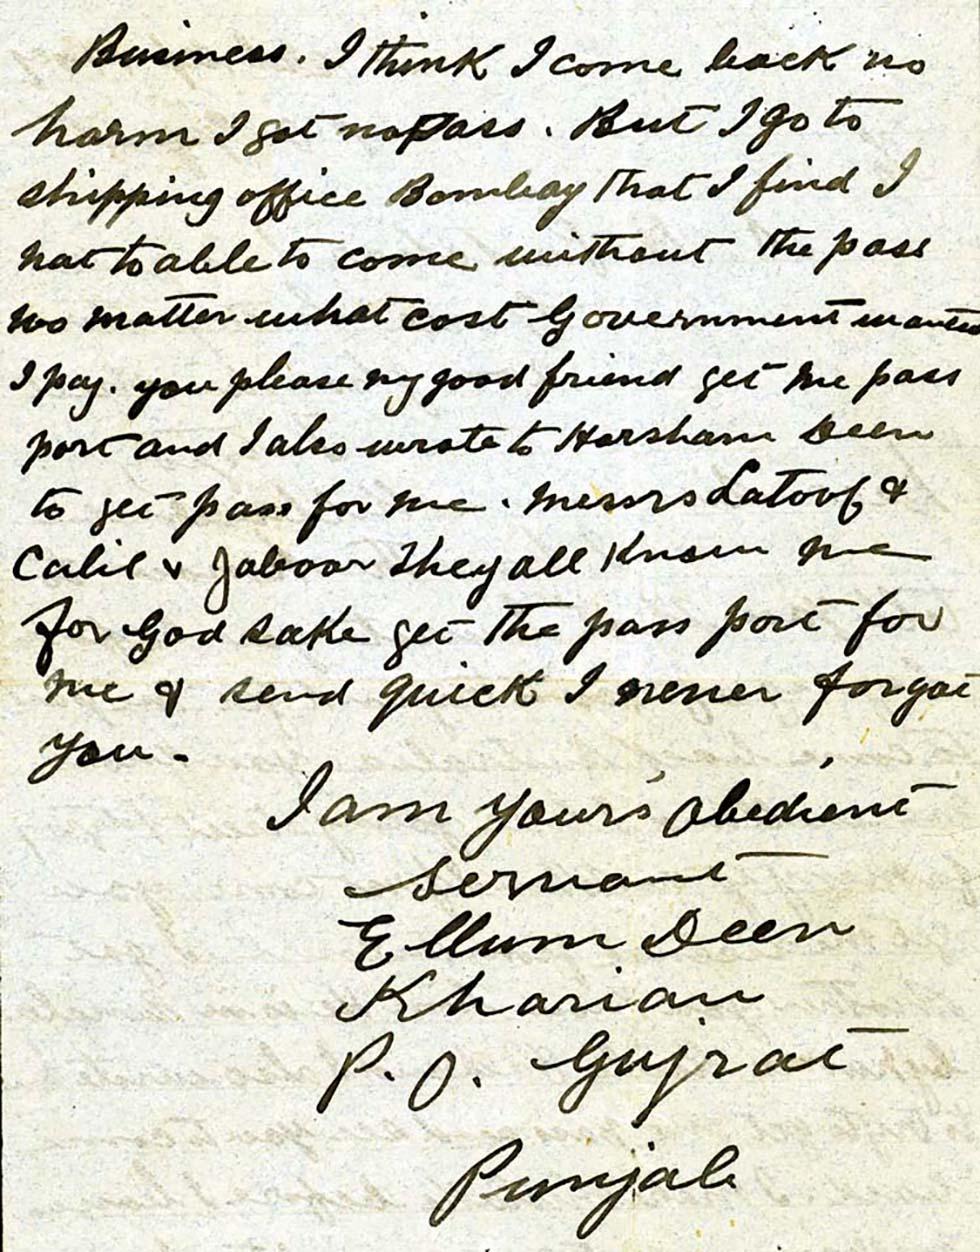 Business. I think I come back no
harm I got no Pass. But I go to
shipping office Bombay that I find I
not to able to come without the pass
no matter what cost Government wanted
I pay. you please my good friend get me pass
port and I also wrote to Horsham Deen
to get pass for me. Messrs Latoof &
Calil & Jaboor they all know me
for God sake get the pass port for
me & send quick I never forgat
you -
I am your's obedient
Servant
Ellum Deen
Kharian
P. O. Gujrat
Punjab